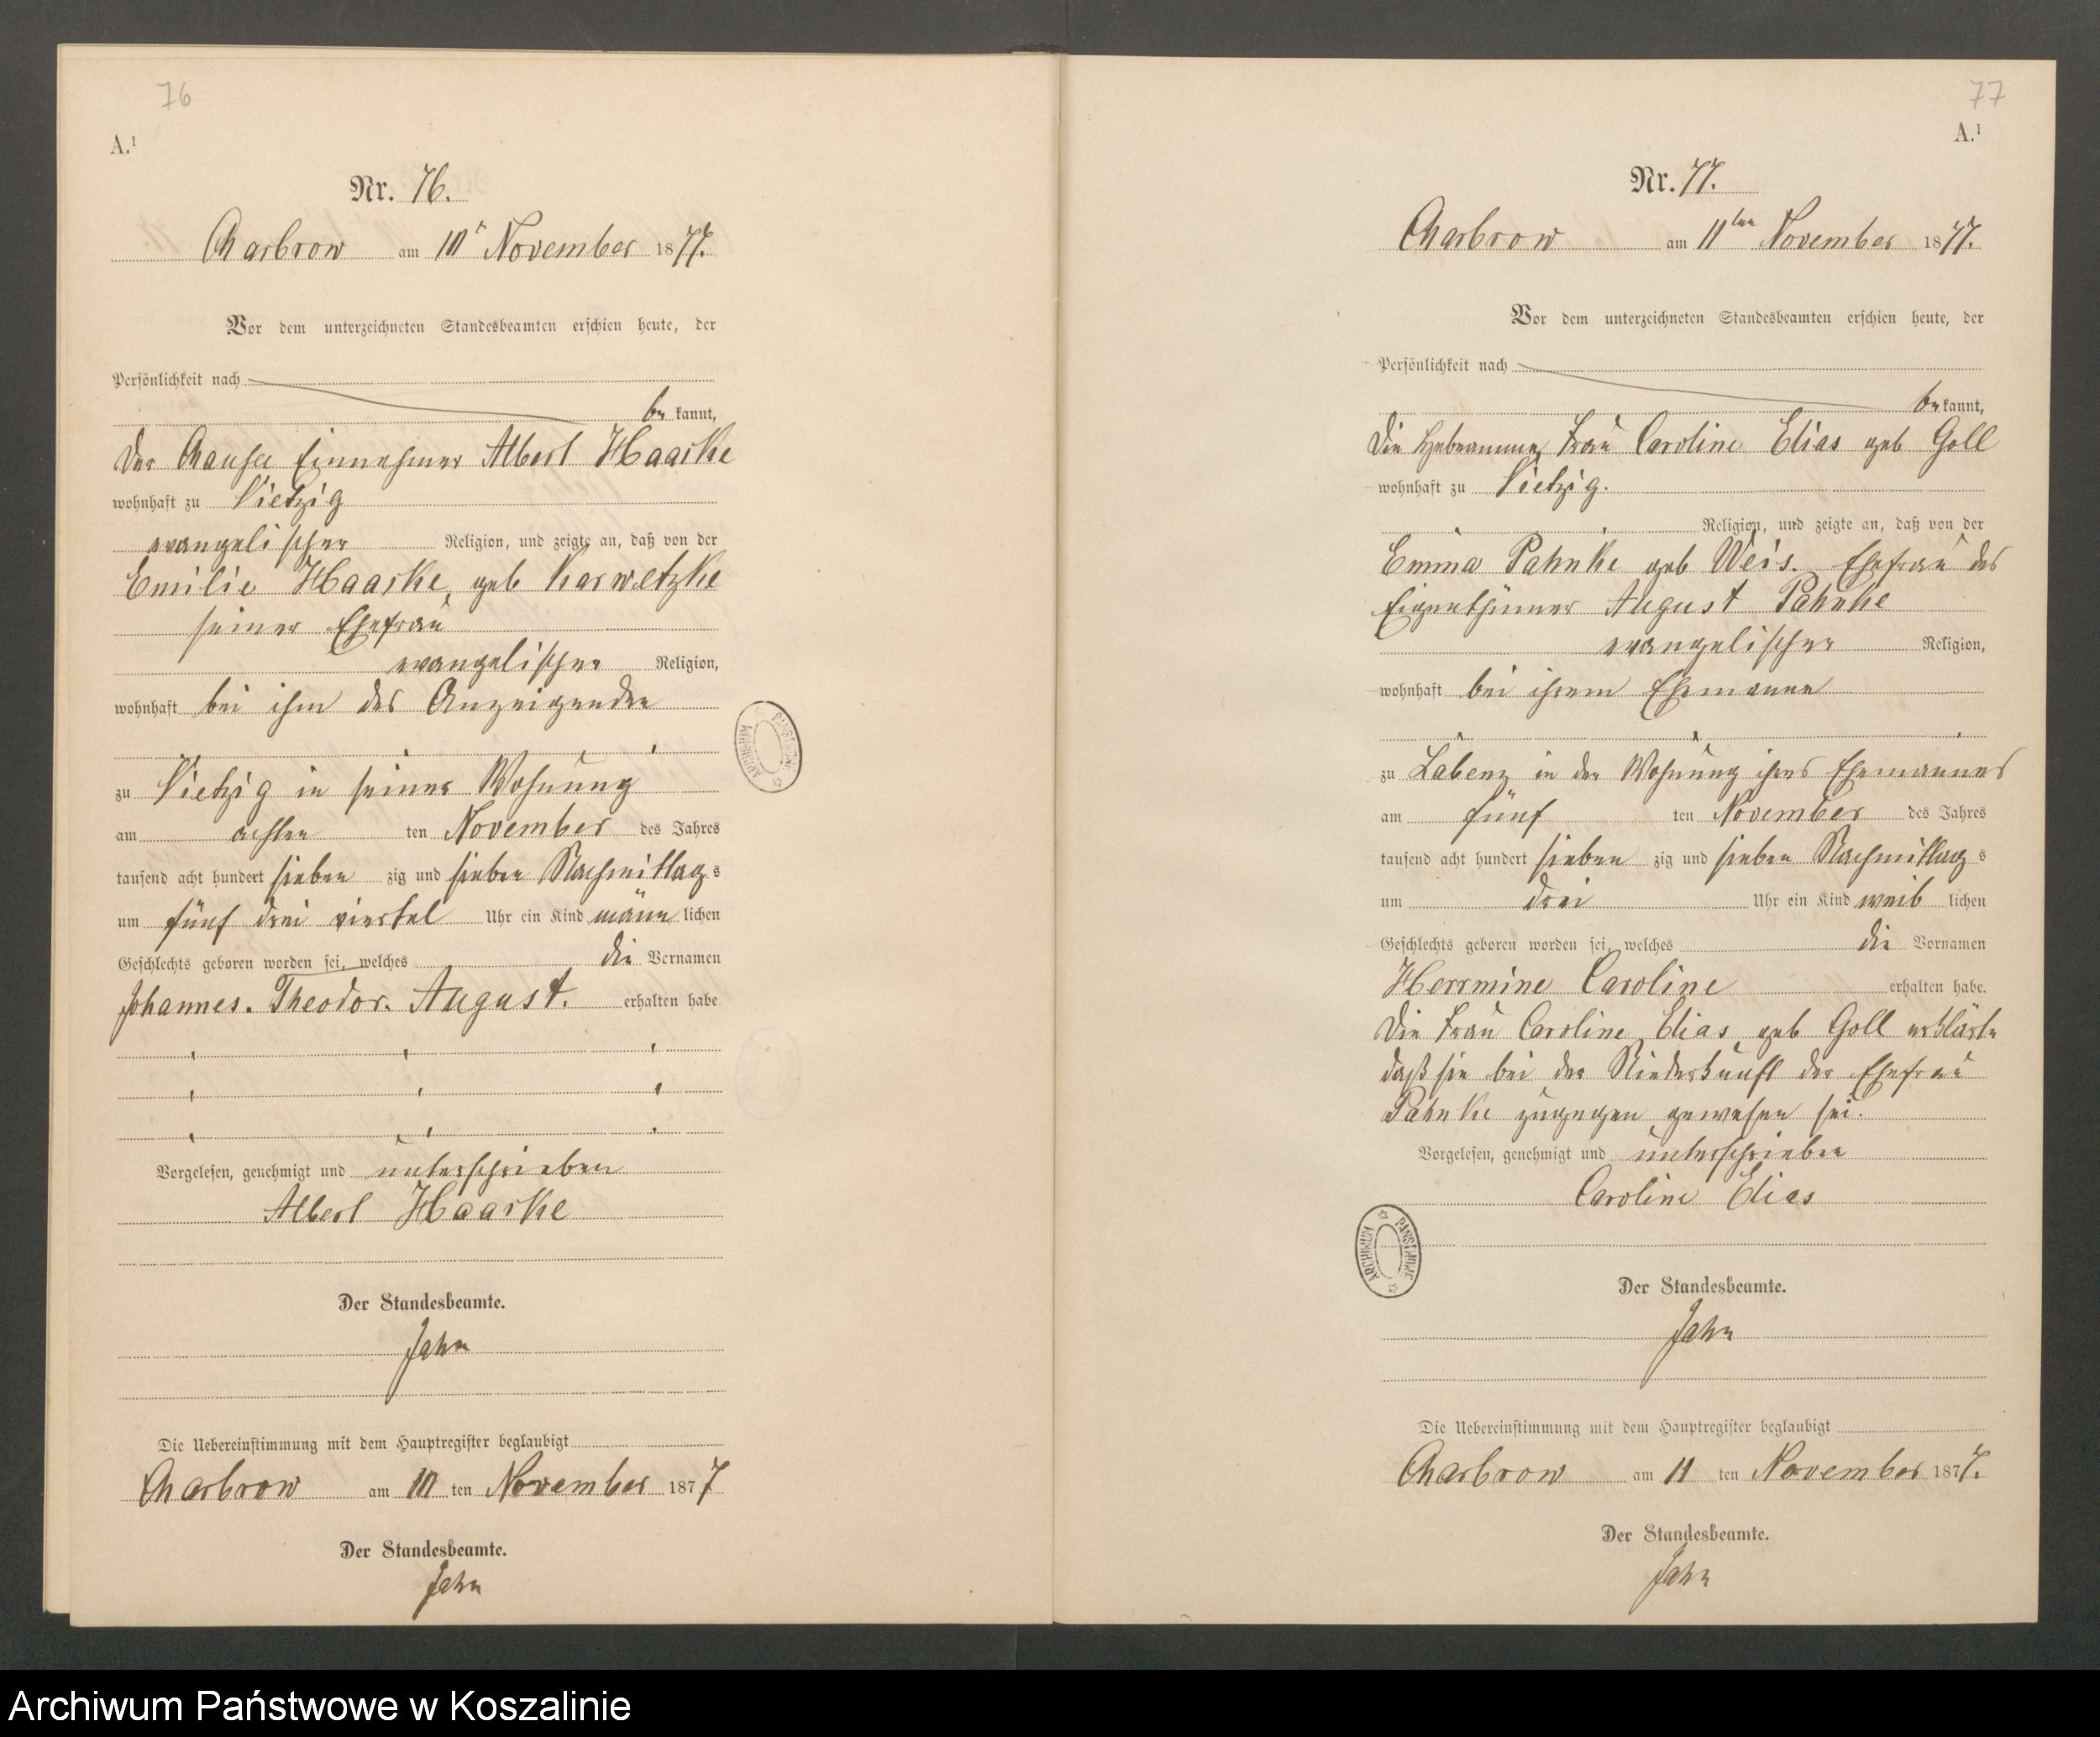 76
A.¹
Nr. 76.
Charbrow am 10t November 1877.
Vor dem unterzeichneten Standesbeamten erschien heute, der
Persönlichkeit nach
be kannt,
der Chausee Einnehmer Albert Haaske
wohnhaft zu Vietzig
evangelischer Religion, und zeigte an, daß von der
Emilie Haaske, geb Karwetzke
seiner Ehefrau
evangelischer Religion,
wohnhaft bei ihm des Anzeigenden
zu Vietzig in seiner Wohnung
am achten ten November des Jahres
tausend acht hundert sieben zig und sieben Nachmittag s
um fünf drei viertel Uhr ein Kind männ lichen
Geschlechts geboren worden sei, welches die Vornamen
Johannes. Theodor. August. erhalten habe
Vorgelesen, genehmigt und unterschrieben
Albert Haaske
Der Standesbeamte.
Jahn
Die Uebereinstimmung mit dem Hauptregister beglaubigt
Charbrow am 10 ten November 1877
Der Standesbeamte.
Jahn
77
A.¹
Nr. 77.
Charbrow am 11ten November 1877.
Vor dem unterzeichneten Standesbeamten erschien heute, der
Persönlichkeit nach
be kannt,
die Hebeamme, Frau Caroline Elias geb Goll
wohnhaft zu Vietzig.
Religion, und zeigte an, daß von der
Emma Pahnke geb Weis. Ehefrau des
Eigenthümer August Pahnke
evangelischer Religion,
wohnhaft bei ihrem Ehemanne
zu Labenz in der Wohnung ihres Ehemannes
am fünf ten November des Jahres
tausend acht hundert sieben zig und sieben Nachmittag s
um drei Uhr ein Kind weib lichen
Geschlechts geboren worden sei, welches die Vornamen
Herrmine Caroline erhalten habe.
Die Frau Caroline Elias geb Goll erklärte
daß sie bei der Niederkunft der Ehefrau
Pahnke zugegen gewesen sei.
Vorgelesen, genehmigt und unterschrieben
Caroline Elias
ARCHIWUM PAŃSTWOWE
Der Standesbeamte.
Jahn
Die Uebereinstimmung mit dem Hauptregister beglaubigt
Charbrow am 11 ten November 1877.
Der Standesbeamte.
Jahn
Archiwum Państwowe w Koszalinie